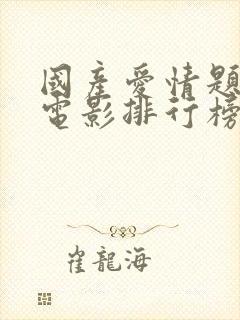 國產愛情題
電影排行榜
崔龍海